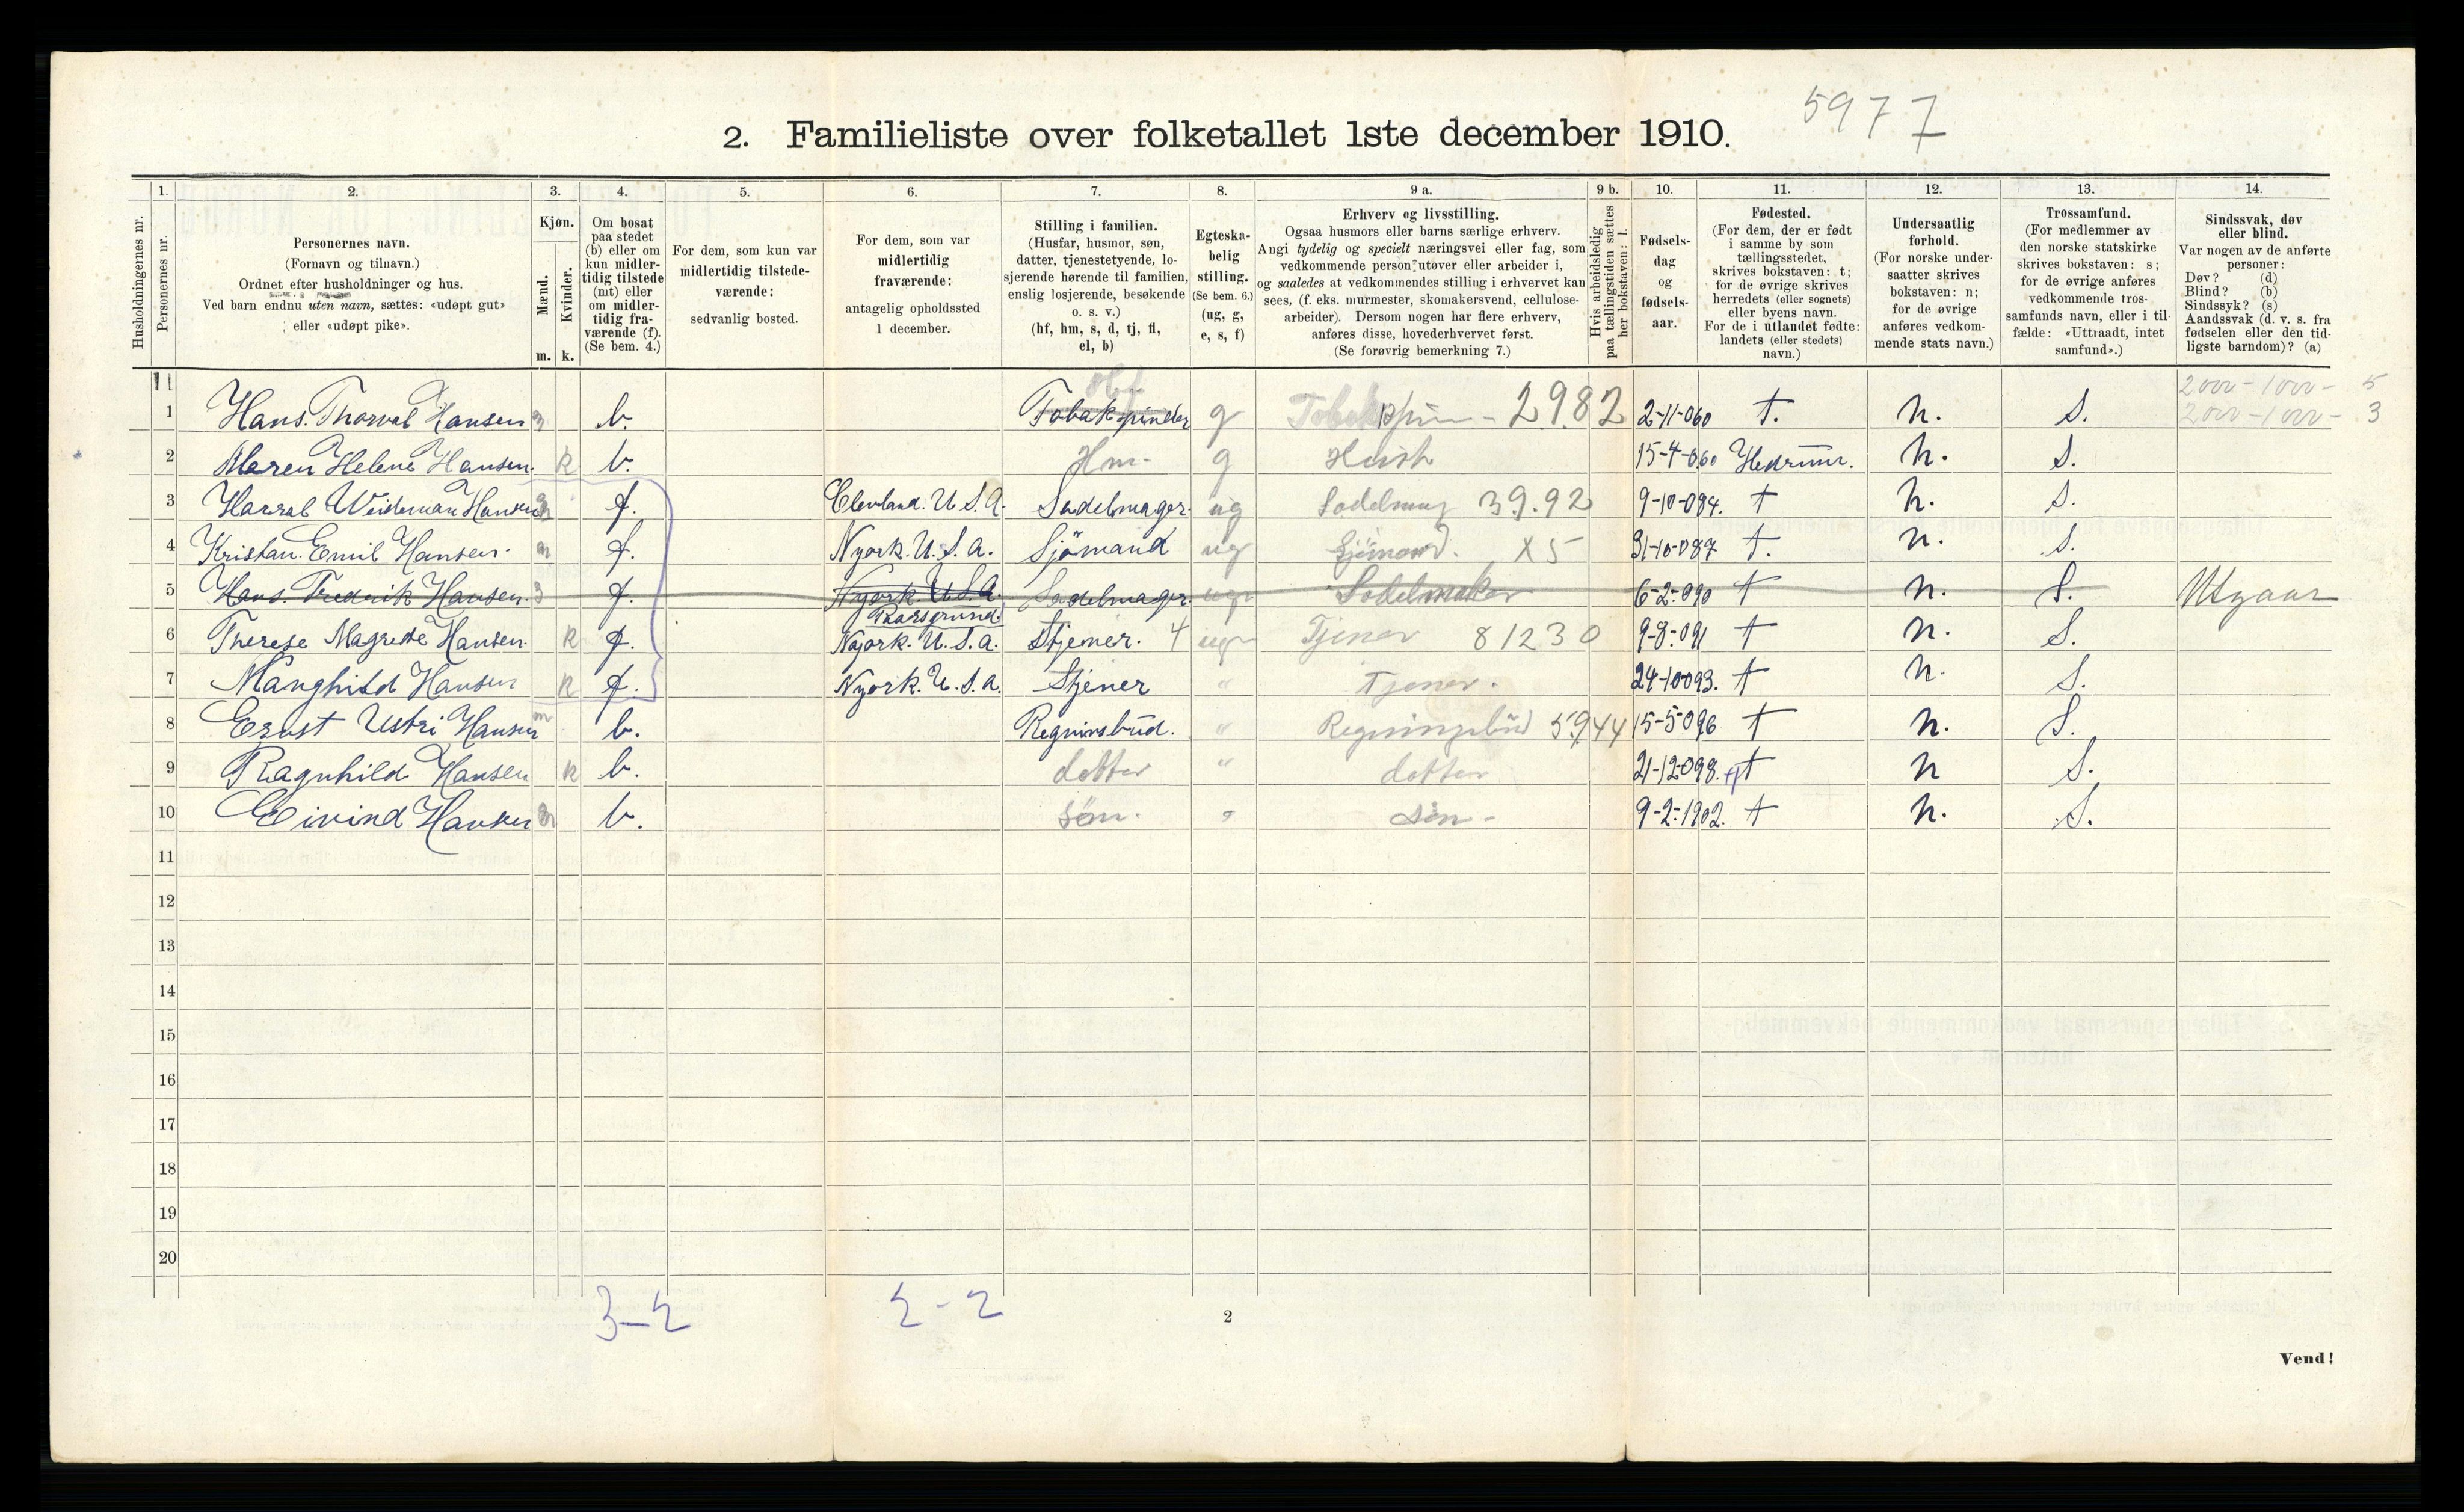 5977
2. Familieliste over folketallet 1ste december 1910.
1. 2. 3. 4. 5. 6. 7. 8. 9 a. 9 b. 10. 11. 12. 13. 14.
Husholdningernes nr.
Personernes nr.
Personernes navn.
(Fornavn og tilnavn.)
Ordnet efter husholdninger og hus.
Ved barn endnu uten navn, sættes: «udøpt gut»
eller «udøpt pike».
Kjøn.
Mænd.
Kvinder.
m. k.
Om bosat
paa stedet
(b) eller om
kun midler-
tidig tilstede
(mt) eller
om midler-
tidig fra-
værende (f).
(Se bem. 4.)
For dem, som kun var
midlertidig tilstede-
værende:
sedvanlig bosted.
For dem, som var
midlertidig
fraværende:
antagelig opholdssted
1 december.
Stilling i familien.
(Husfar, husmor, søn,
datter, tjenestetyende, lo-
sjerende hørende til familien,
enslig losjerende, besøkende
o. s. v.)
(hf, hm, s, d, tj, fl,
el, b)
Egteska-
belig
stilling.
(Se bem. 6.)
(ug, g,
e, s, f)
Erhverv og livsstilling.
Ogsaa husmors eller barns særlige erhverv.
Angi tydelig og specielt næringsvei eller fag, som
vedkommende person utøver eller arbeider i,
og saaledes at vedkommendes stilling i erhvervet kan
sees, (f. eks. murmester, skomakersvend, cellulose-
arbeider). Dersom nogen har flere erhverv,
anføres disse, hovederhvervet først.
(Se forøvrig bemerkning 7.)
Hvis arbeidsledig
paa tællingstiden sættes
her bokstaven: l.
Fødsels-
dag
og
fødsels-
aar.
Fødested.
(For dem, der er født
i samme by som
tællingsstedet,
skrives bokstaven: t;
for de øvrige skrives
herredets (eller sognets)
eller byens navn.
For de i utlandet fødte:
landets (eller stedets)
navn.)
Undersaatlig
forhold.
(For norske under-
saatter skrives
bokstaven: n;
for de øvrige
anføres vedkom-
mende stats navn.)
Trossamfund.
(For medlemmer av
den norske statskirke
skrives bokstaven: s;
for de øvrige anføres
vedkommende tros-
samfunds navn, eller i til-
fælde: «Uttraadt, intet
samfund».)
Sindssvak, døv
eller blind.
Var nogen av de anførte
personer:
Døv? (d)
Blind? (b)
Sindssyk? (s)
Aandssvak (d. v. s. fra
fødselen eller den tid-
ligste barndom)? (a)
Hf 2000-1000- 5
1 Hans. Thorval Hansen m b. Tobakspinder g Tobakspin - 2982 2-11-060 t. n. S. 2000-1000- 3
2 Maren Helene Hansen. k b. Hm- g Hust 15-4-060 Hedrum. n. S.
3 Harral Weideman Hansen m f. Clevland. U.S.A. Sadelmager. ug Sadelmag 39.92 9-10-084. t n. S.
4 Kristan. Emil Hansen. m f. Nyork. U.S.A. Sjömand ug Sjömand. X5 31-10-087 t. n. S.
5 Hans. Fredrik Hansen. m f. Nyork U.S.A. Sadelmager. ug Sadelmaker 6-2-090 t n. S. Utgaar
Porsgrund
6 Therese Magrete Hansen. k f. Nyork. U.S.A. Stjener. 4 ug Tjener 81230 9-8-091 t n. S.
7 Manghild Hansen k f. Nyork. U.S.A. Stjener " Tjener. 24-10-093. t n. S.
8 Ernst Ustri Hansen m b. Regninsbud. " Regningsbud 5944 15-5-096 t n. S.
9 Ragnhild Hansen k b. datter " datter 21-12-098. t n S.
10 Eivind Hansen m b. søn. " søn - 9-2-1902. t n. S.
11
12
13
14
15
16
17
18
19
20
3-2 2-2
2
Vend!